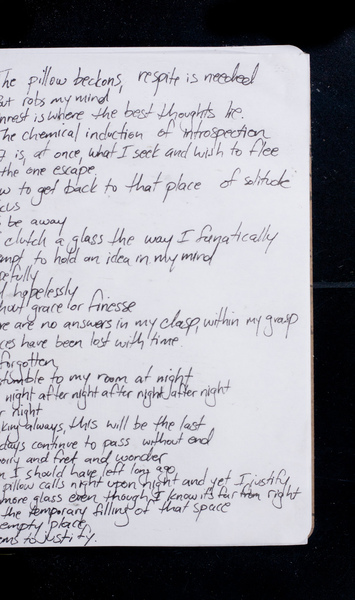 The pillow beckons, respite is needed
But robs my mind
unrest is where the best thoughts lie.
The chemical induction of introspection
It is, at once, what I seek and wish to flee
the one escape
to get back to that place of solitude
be away
clutch a glass the way I fanatically
to hold an idea in my mind
hopelessly
without grace or finesse
There are no answers in my clasp, within my grasp
have been lost with time
forgotten
stumble to my room at night
night after night after night after night
night
always, this will be the last
days continue to pass without end
and fret and wonder
I should have left long ago
pillow calls night upon night and yet I justify
more glass even though I know it's far from right
the temporary filling of that space
empty place
to justify.